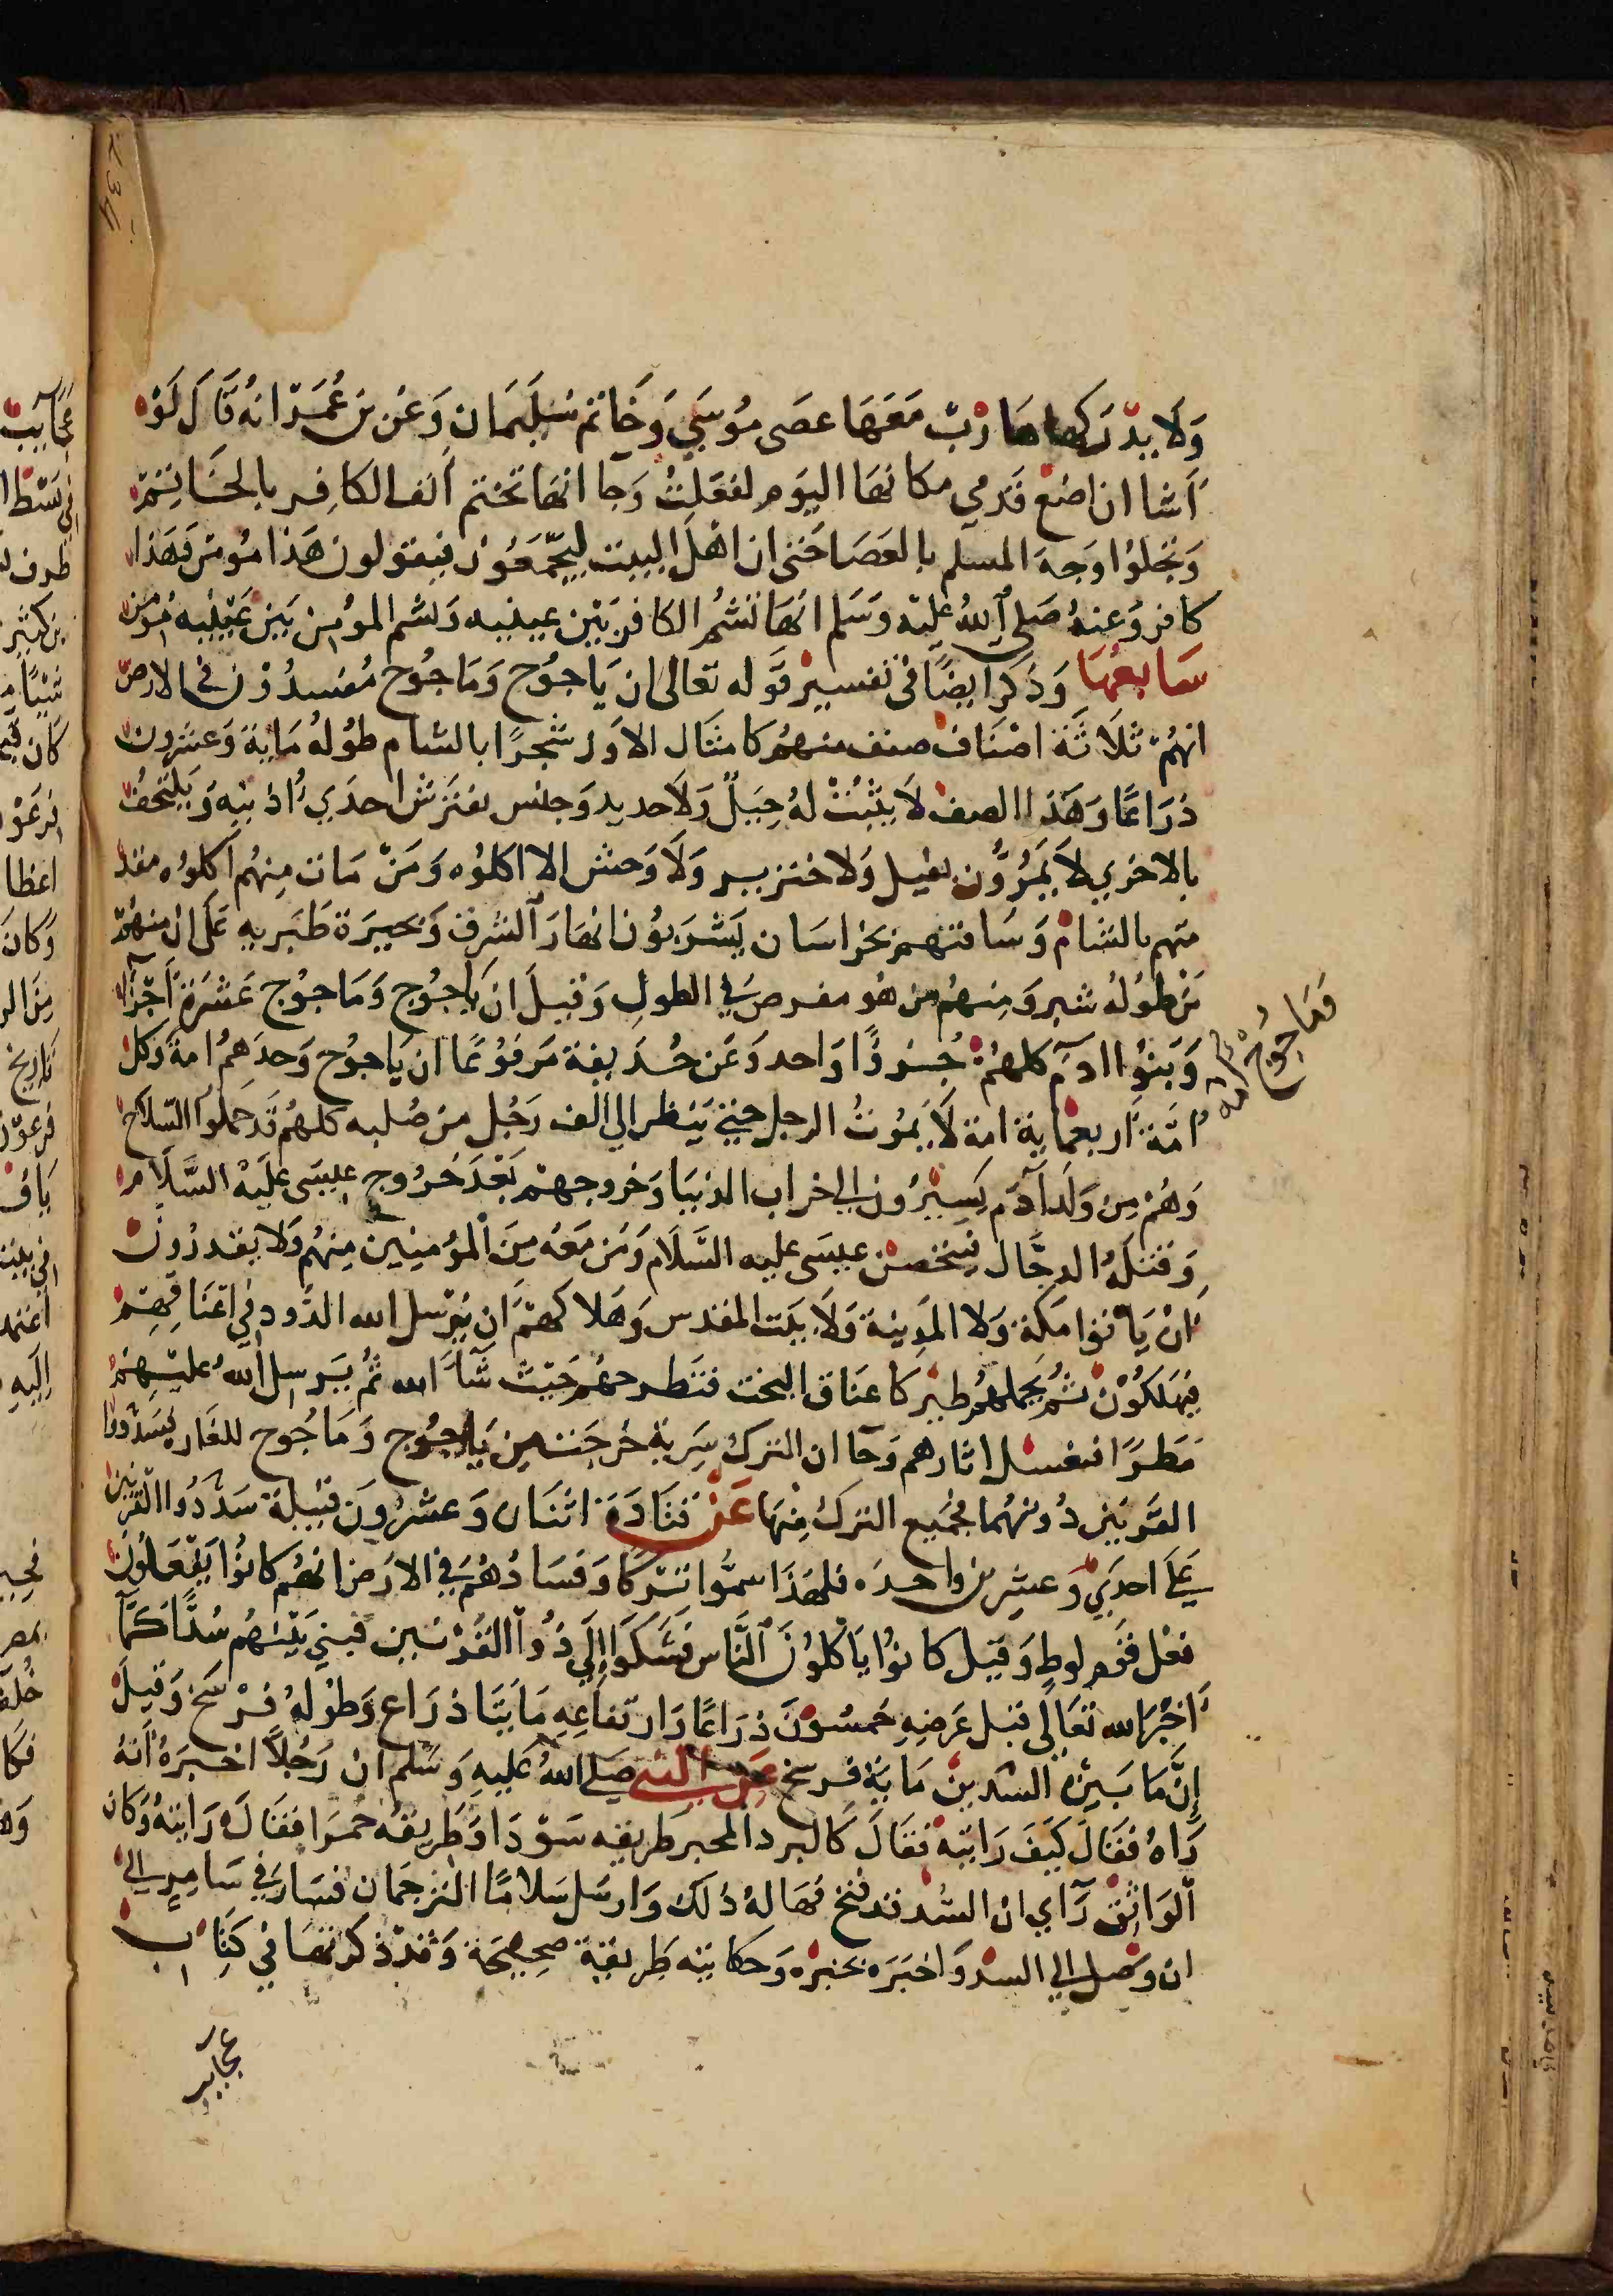 وَلَا يدْرَكها هَارْبٌ مَعَهَا عصَى مُوسَي وَخَاتم سُلَيمَان وَعَن بن عُمَرْ انهُ قَالَ لَوْ
أشا ان اضع قدَمي مكانهَا اليَوم لفعَلتُ وَجا انهَا تختم أنف الكافِر بالخَاتِمْ
وَتجلوُا وَجهَ المسلم بالعَصَا حَتي ان اهْلَ البيت ليجّمَعُون فيقولون هَذا مُومن وَهَذا
كافر وَعنهُ صَلي اللهُ عليْه وَسَلم انهَا تَسْمُ الكافر بَيْن عينيه وَتسم المؤمن بَين عَيْنيه مُؤمن
سَابعهَا وَذكر ايضًا في تفسير قوله تعَالى ان يَاجُوج وَمَاجُوج مُفسدُون في الارض
انهُمْ ثلَاثَة اصْنَاف صنف منهُم كامثَال الاوَز شجرًا بالشام طوْلهُ مَاية وَعشرون
ذرَاعًا وَهَذا الصنف لَا يثبُتْ لهُ جبَلٌ وَلَا حديد وَجنس يفترش احدَي أذنيه وَيَلتحفُ
بالاخري لَا يَمُرُّون بفيل وَلا خنزير وَلَا وَحش الا اكلوُه وَمَنْ مَات مِنهُم اكلوُه مقد
متهم بالشام وَسَاقتهم بخرَاسَان يَشْرَبوُن انهَارَ الشرق وَبحيرَة طَبَريه عَلى ان منهُمْ
مَن طوُلهُ شبر وَمِنهُم من هُو مفرص في الطولِ وَقيلَ ان يَاجُوج وَمَاجوُج عَشرَة أجْزَا
وَبنوُا ادَم كلهُمْ جُزوًا وَاحد وَعَن حُذيفة مَرفوُعًا ان يَاجوُج وَحدَهمُ امة وَكل
فمَاجوُج امه
أمَّة اربعمَاية امة لَا يَمُوتُ الرجل حتي يَنظر الي ألف رَجُل من صُلبه كلهُم قَد حَملوا السّلاح
وَهُمْ مِن وَلَد آدَم يَسِيْرُون الي خراب الدنيَا وَخروجهمْ بَعْدَ خرُوج عيسَى عليْه السَّلَام
وَقتلهُ الدجَّال فيتحصن عيسَى عليه السَّلَام وَمَن مَعَهُ مِنَ الْمؤمِنِين مِنهُم وَلَا يقدرُون
انْ يَاْتوا مَكة وَلا المَدِينة وَلَا بيَت المقدس وَهَلاكهمْ أن يُرْسل الله الدُود في اعْنَاقِهِمْ
فيهلكُوْن ثُمَّ يَحملهُم طيْر كاعنَاق البخت فتَطرحهُم حَيْث شآءَ الله ثمُ يَرسل اللهُ عليْهِمْ
مَطرًا فيغسل اثارهم وَجا ان الترك سَرية خرجَت مِن يَاجُوج وَمَاجُوج للغَاره فسَدّ ذوا
القرْنين دُونهُما فجميع الترك مِنهَا عَنْ قتَادَة اثنَان وَعشْرُونَ قبيلَة سَدّ ذوا القَرنين
عَلَى احدَي وَعشرين وَاحدَه فلهَذا سمُّوا تركًا وَفسَادُهُم في الارْض انهُم كانوُا يَفعَلون
فعْل قوم لوطٍ وَقيل كانوُا يَاْكلوُنَ النَّاس فشَكوَا إلَي ذُوا القرْنين فبني بَيْنهُم سُدًّا كمَا
أخبَرَ الله تعَالى قيل عَرضِهِ خمسُوْنَ ذرَاعًا وَارتفاعِهِ مَايَتَا ذرَاع وَطولهُ فرْسَخ وَقيل
إنَّ مَا بَيْن السّدين مَاية فرسخ عَن النبي صَلى اللهُ عَليهِ وَسَلم انْ رَجُلاً اخبرَهُ أنهُ
رَاهُ فقَال كيَفَ رَايتَه فقَالَ كالبرد المحبر طَريقه سَوْدَا وَطَريقه حمرَا فقَالَ رَايتهُ وَكان
الوَاثق رَآي ان السُّد قد فتح فهَالهُ ذلك وَارسَل سَلامًا الترجمَان فسَار في سَامِري الي
ان وَصل الي السد وَاخبَرَه بخبره وَحكايته طَريقة صَحِيحَة وَقدْ ذكرتهَا في كتَابِ
عجايب